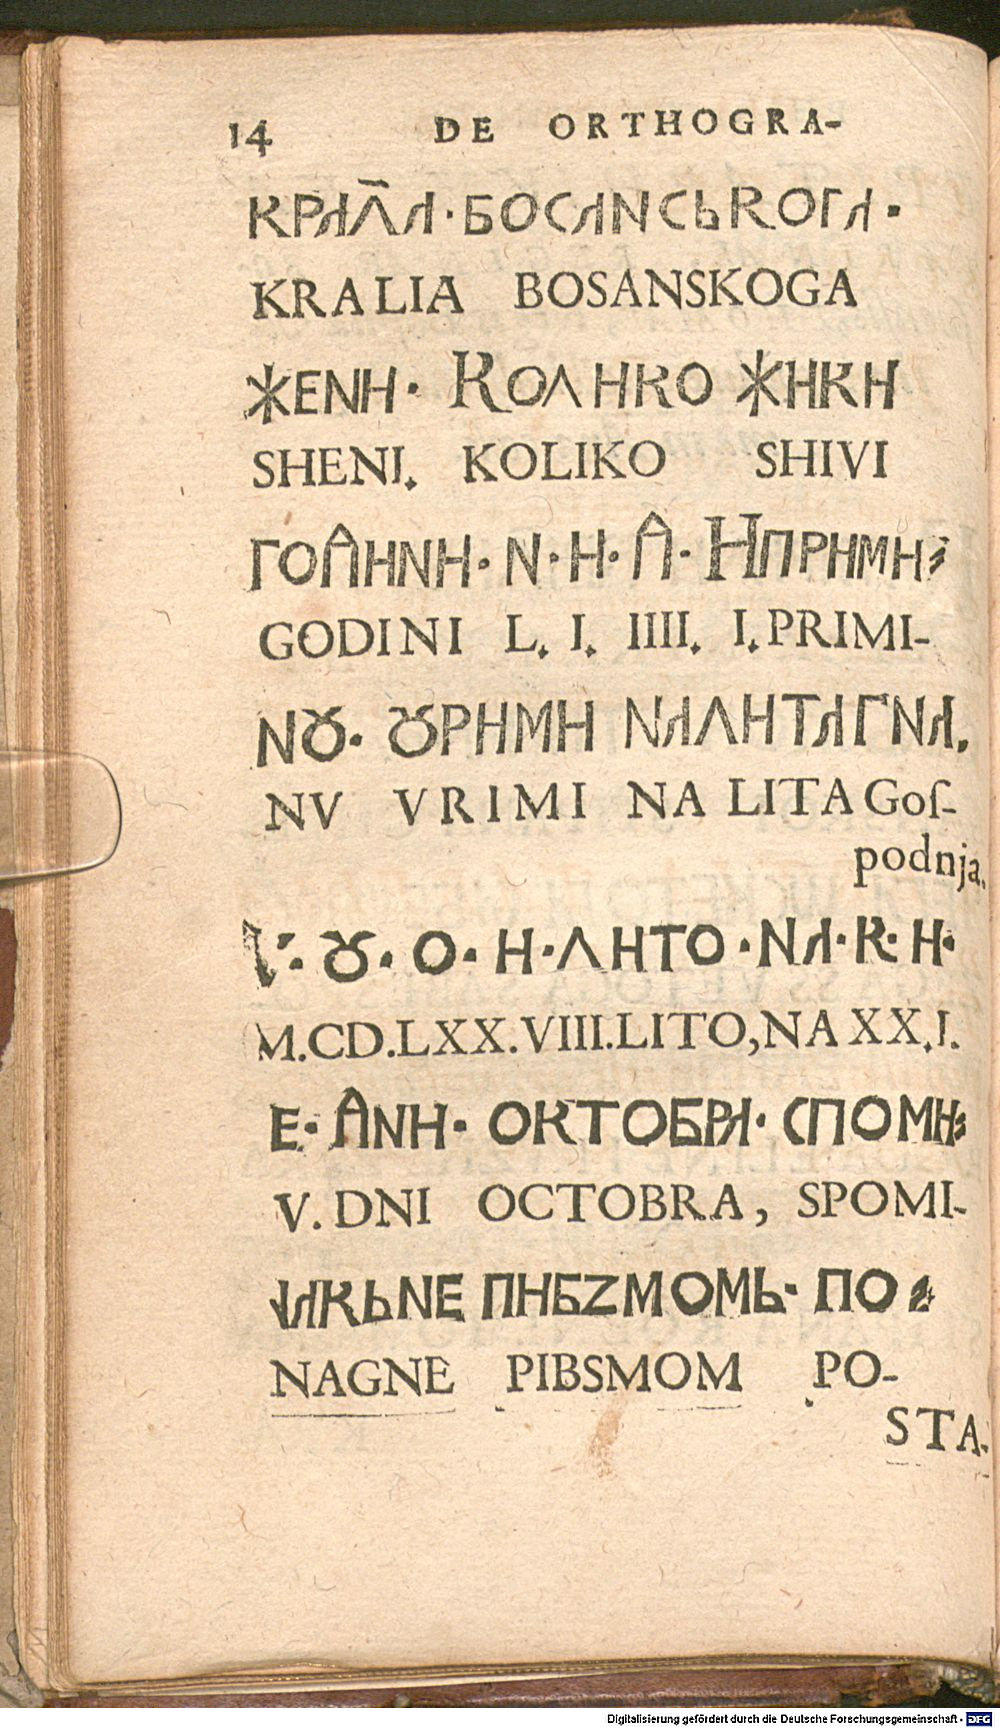 14 DE ORTHOGRA-
КРАЛ̄А · БОСАNСЬКОГА ·
KRALIA BOSANSKOGA
ЖЕNН · КОЛНКО ЖНКН
SHENI. KOLIKO SHIVI
ГОДНNН · N · Н · Д · НПРНМН-
GODINI L. I. IIII. I. PRIMI-
NȢ · ȢРНМН NАЛНТА ГNА.
NV VRIMI NA LITA Goſ-
podnja.
Ȣ · О · Н · ЛНТО · NА · К · Н ·
M.CD.LXX.VIII.LITO, NA XX.I.
Е · ДNН · ОКТОБРА · СПОМН-
V. DNI OCTOBRA, SPOMI-
NАКЬNЕ ПНБZМОМЬ · ПО-
NAGNE PIBSMOM PO-
STA-
Digitalisierung gefördert durch die Deutsche Forschungsgemeinschaft - DFG